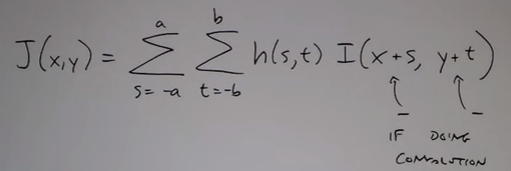 J(x,y) = ∑_{s=-a}^{a} ∑_{t=-b}^{b} h(s,t) I(x+s, y+t)
– –
IF DOING
CONVOLUTION